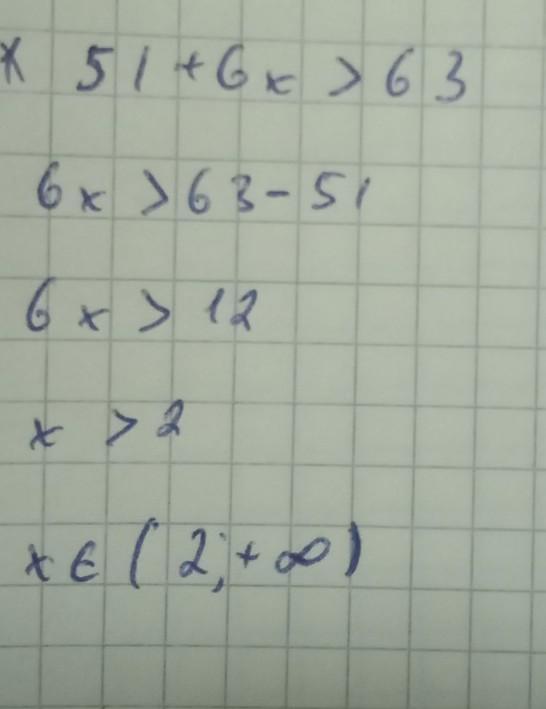 * 51 + 6x > 63
6x > 63 - 51
6x > 12
x > 2
x ∈ ( 2; + ∞)